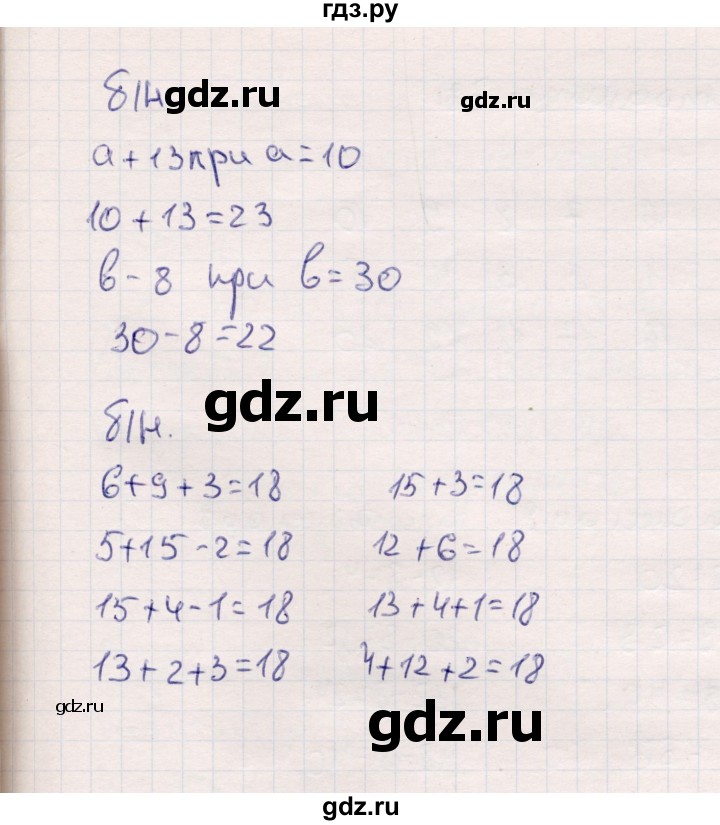 гдз.ру
б/н gdz.ru gdz.ru
а + 13 при а = 10
10 + 13 = 23
в - 8 при в = 30
30 - 8 = 22
gdz.ru
б/н.
6 + 9 + 3 = 18 15 + 3 = 18
5 + 15 - 2 = 18 12 + 6 = 18
15 + 4 - 1 = 18 13 + 4 + 1 = 18
13 + 2 + 3 = 18 4 + 12 + 2 = 18
gdz.ru gdz.ru
gdz.ru